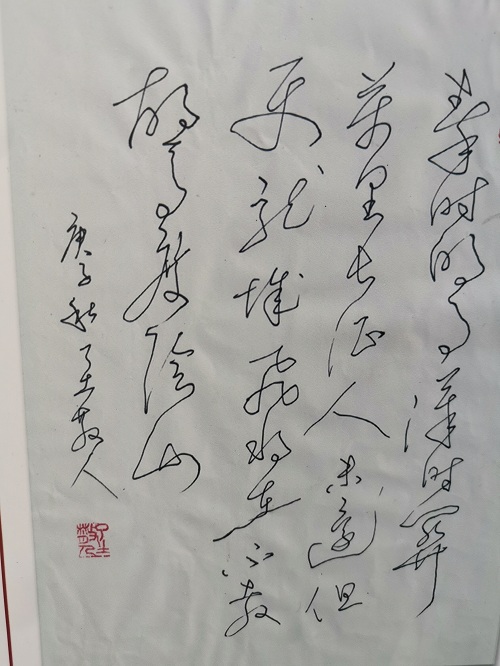 秦时明月漢时關
萬里长征人未還但
使龙城飞将在不教
胡马度陰山
庚子秋散人